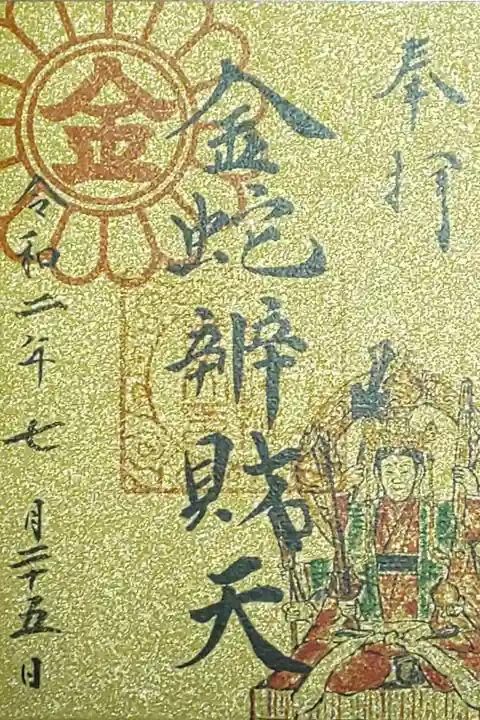 奉拝
金蛇辨財天
令和二年七月二十五日
金